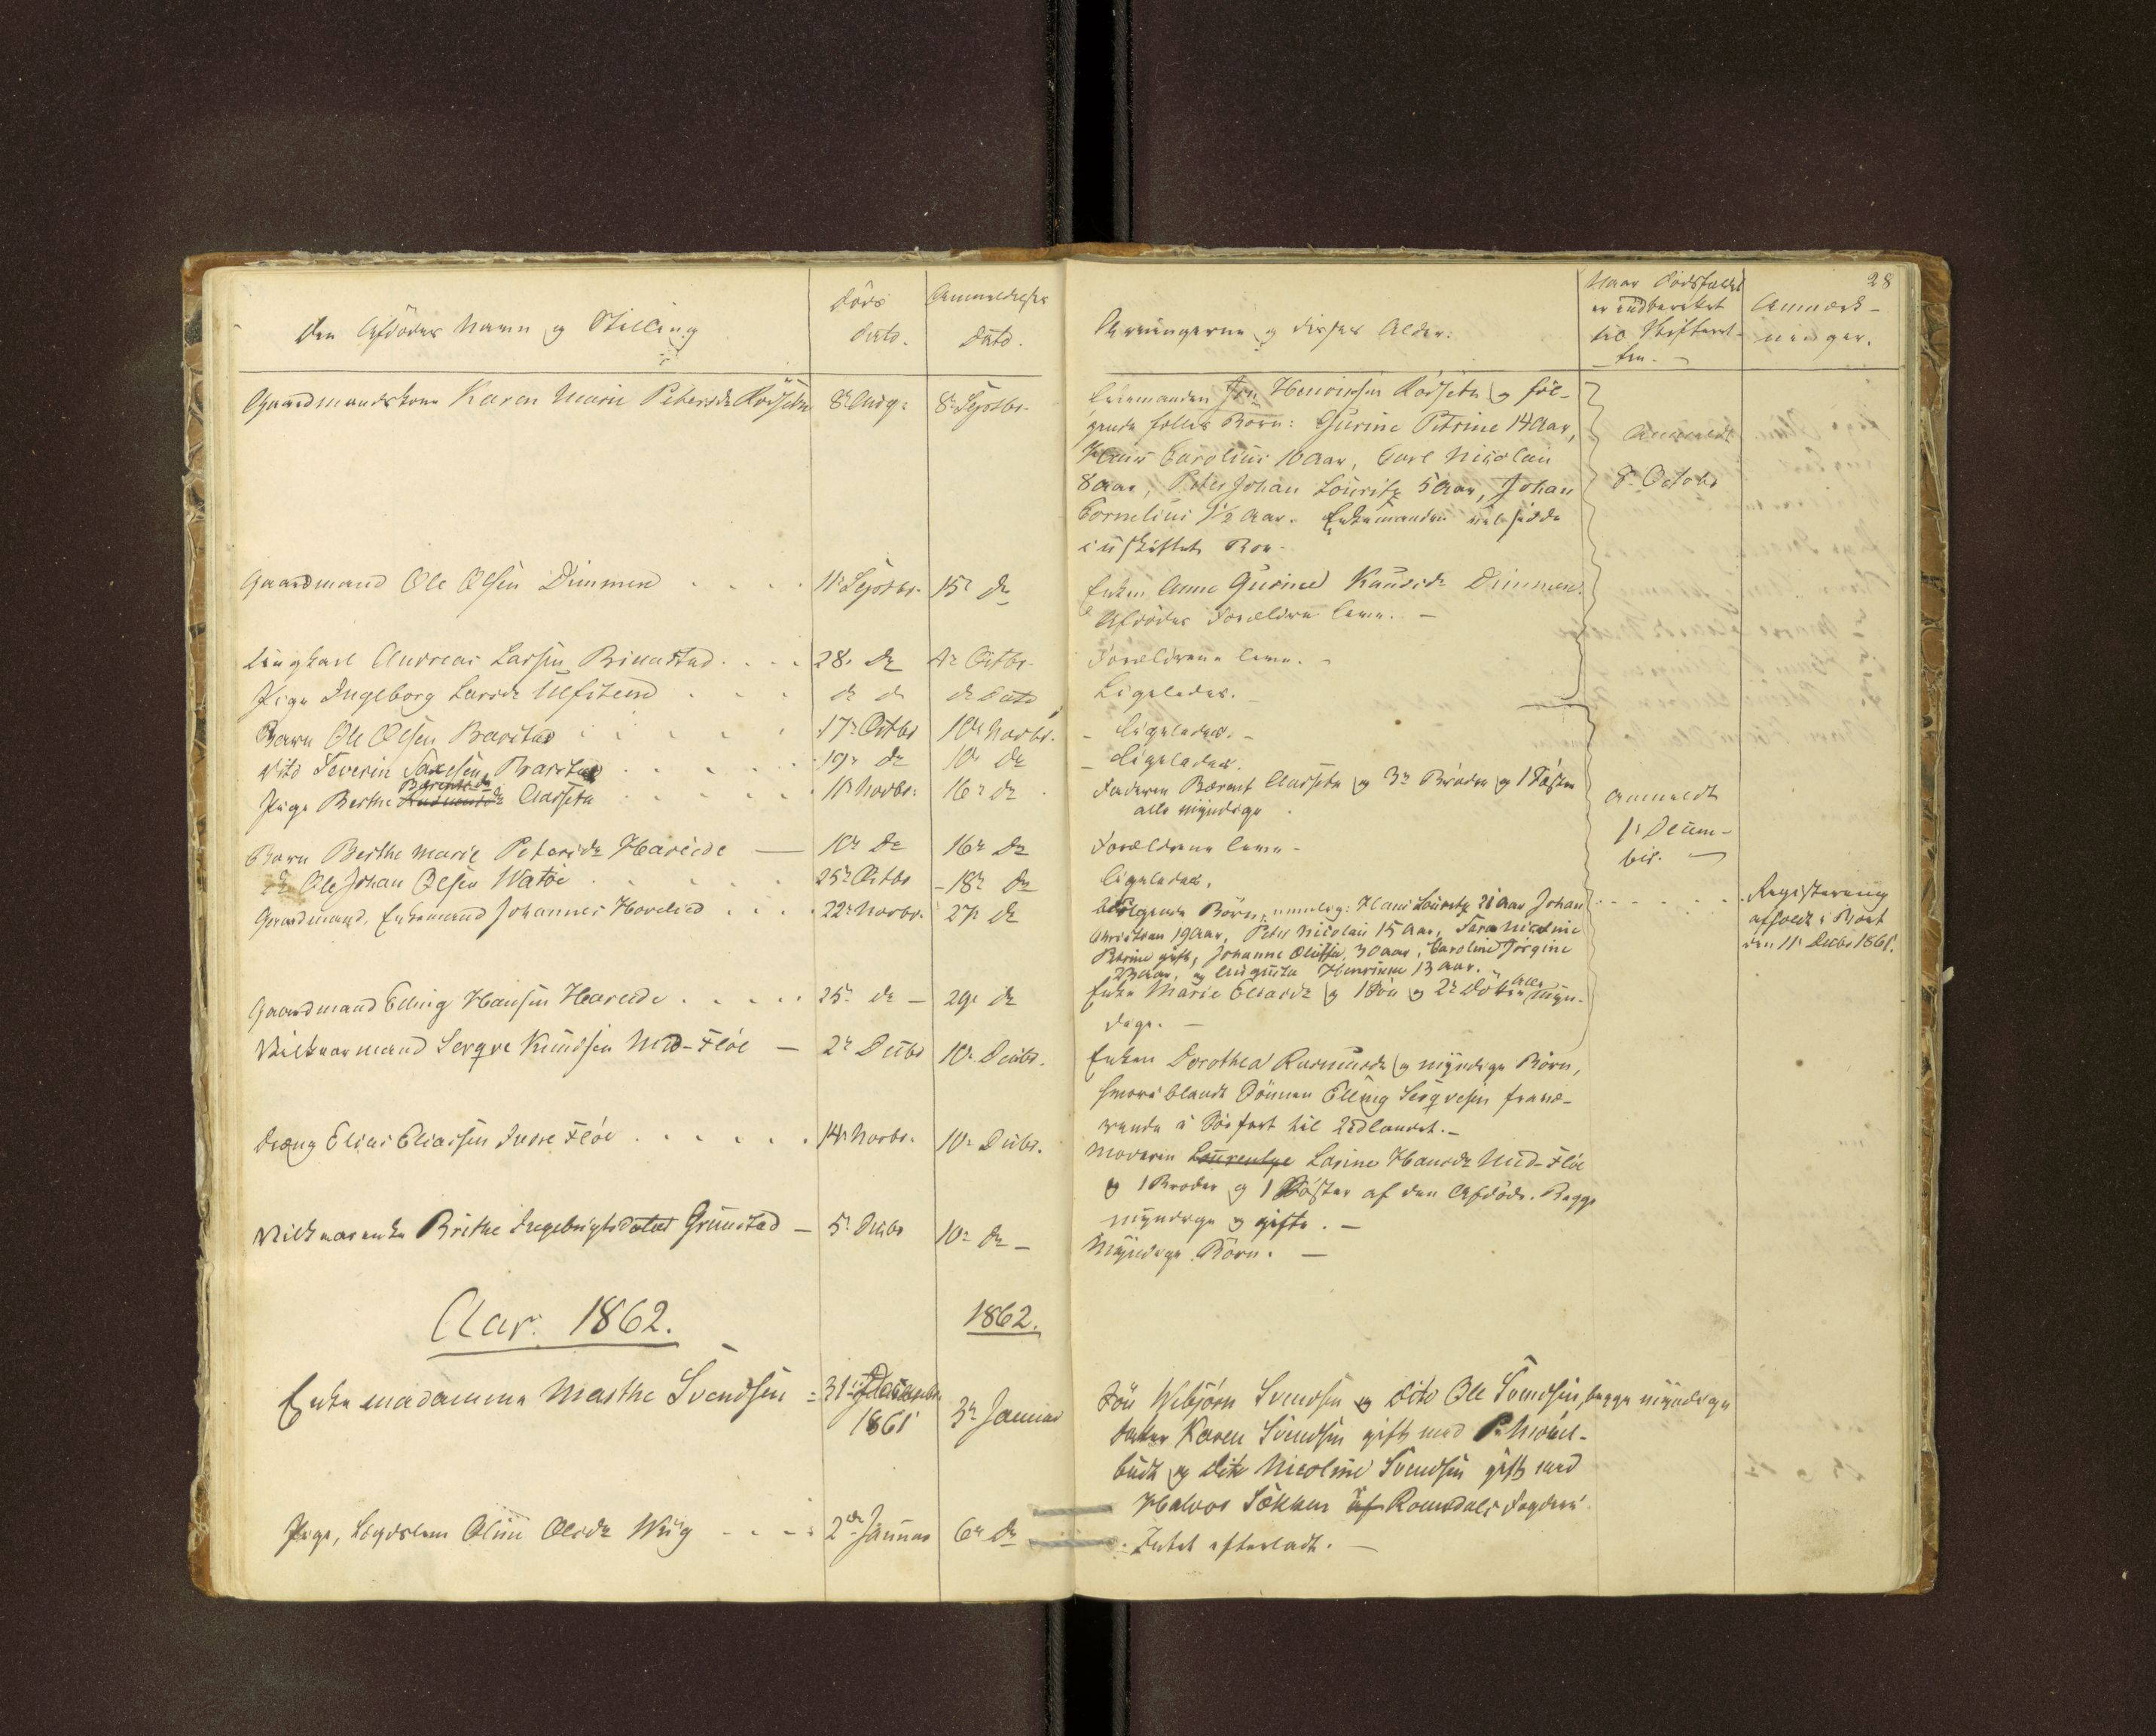 28
Den Afdødes Navn og Stilling
Döds
Dato.
Anmeldelses
Dato.
Arvingerne og disses Alder.
Naar Dödsfaldet
er indberettet
til Skifteret-
ten.
Anmærk-
ninger.
Gaardmandskone Karen Marie Petersdr Rödseth
8r Aug:
8r Septbr.
Enkemanden Henriksen Rödseth og föl-
gende fælles Börn: Gurine Petrine 14 Aar,
Hans Carolius 10 Aar, Carl Nicolai
8 Aar, Peter Johan Lauritz 5 Aar, Johan
Cornelius 1½ Aar. Enkemanden
i uskiftet Boe.
Anmeldt
8r Octobr
Gaardmand Ole Olsen Dimmen . . . .
11r Septbr.
15r dr
Enken Anne Gurine Knudsdr Dimmen.
Afdödes Forældre leve. —
Ungkarl Andreas Larsen Brunstad . . . .
28r dr
4r Octbr.
Forældrene leve. -
Pige Ingeborg Larsdr Ulfsteen . . .
d d
d Dato
Ligeledes.
Barn Ole Olsen Barstad . . . . .
17r Octbr
10r Novbr.
- Ligeledes. -
Dito Severin Barstad . . . . .
19r dr
10r dr
- Ligeledes.
Pige Berthe Barentsdr Aarseth . . . . .
11r Novbr.
16r dr
Faderen Bærent Aarseth og 3r Brödre og 1 Söster
alle myndige .
Anmeldt
1r Decem-
ber.
Barn Berthe Marie Petersdr Hareide —
10r dr
16r dr
Forældrene leve -
dr Ole Johan Olsen Watöe . . . . .
25r Octbr
- 18r dr
Ligeledes.
Gaardmand, Enkemand Johannes Hovlid . . . .
22r Novbr.
27r dr
Fölgende Börn, nemlig: Hans Lauritz 21 Aar Johan
Christian 19 Aar, Peter Nicolai 15 Aar, Sara Nicoline
Petrine gift, Johanne Oluffa 30 Aar, Caroline Jörgine
23 Aar, og Augusta Henrikke 13 Aar.
Registrering
afholdt i Boet
den 11r Decbr 1861.
Gaardmand Elling Hansen Hareide . . . . .
25r dr —
29r dr
Enke Marie og 1 Sön og 2r Dötre, alle myn-
dige. —
Vilkaarmand Serqve Knudsen Mid-Flöe —
2r Decbr
10r Decbr.
Enken Dorothea Rasmusdr og myndige Börn,
hvoriblandt Sönnen Elling Serqvesen fravæ-
rende i Söefart til Udlandet. —
Dreng Elias Eliassen Indre Flöe . . . . . .
14r Novbr.
10r Decbr.
Moderen Laurentze Larine Hansdr Mid-Flöe
og 1 Broder og 1 Söster af den Afdöde. Begge
myndige og gifte. —
Vilkaarenke Brithe Ingebrigtsdatter Grimstad —
5r Decbr
10r dr —
Myndige Börn. —
Aar. 1862.
1862.
Enkemadamme Marthe Svendsen =
31r Decembr
1861
3r Januar
Sön Webjörn Svendsen og dito Ole Svendsen, begge myndige
Datter Karen Svendsen gift med P.
og dito Nicoline Svendsen gift med
Halvor Sökken af Romsdals Fogderi.
Pige, Lægdslem Oline Olsdr Wiig - - - -
2de Januar
6r dr
. Intet efterladt. —